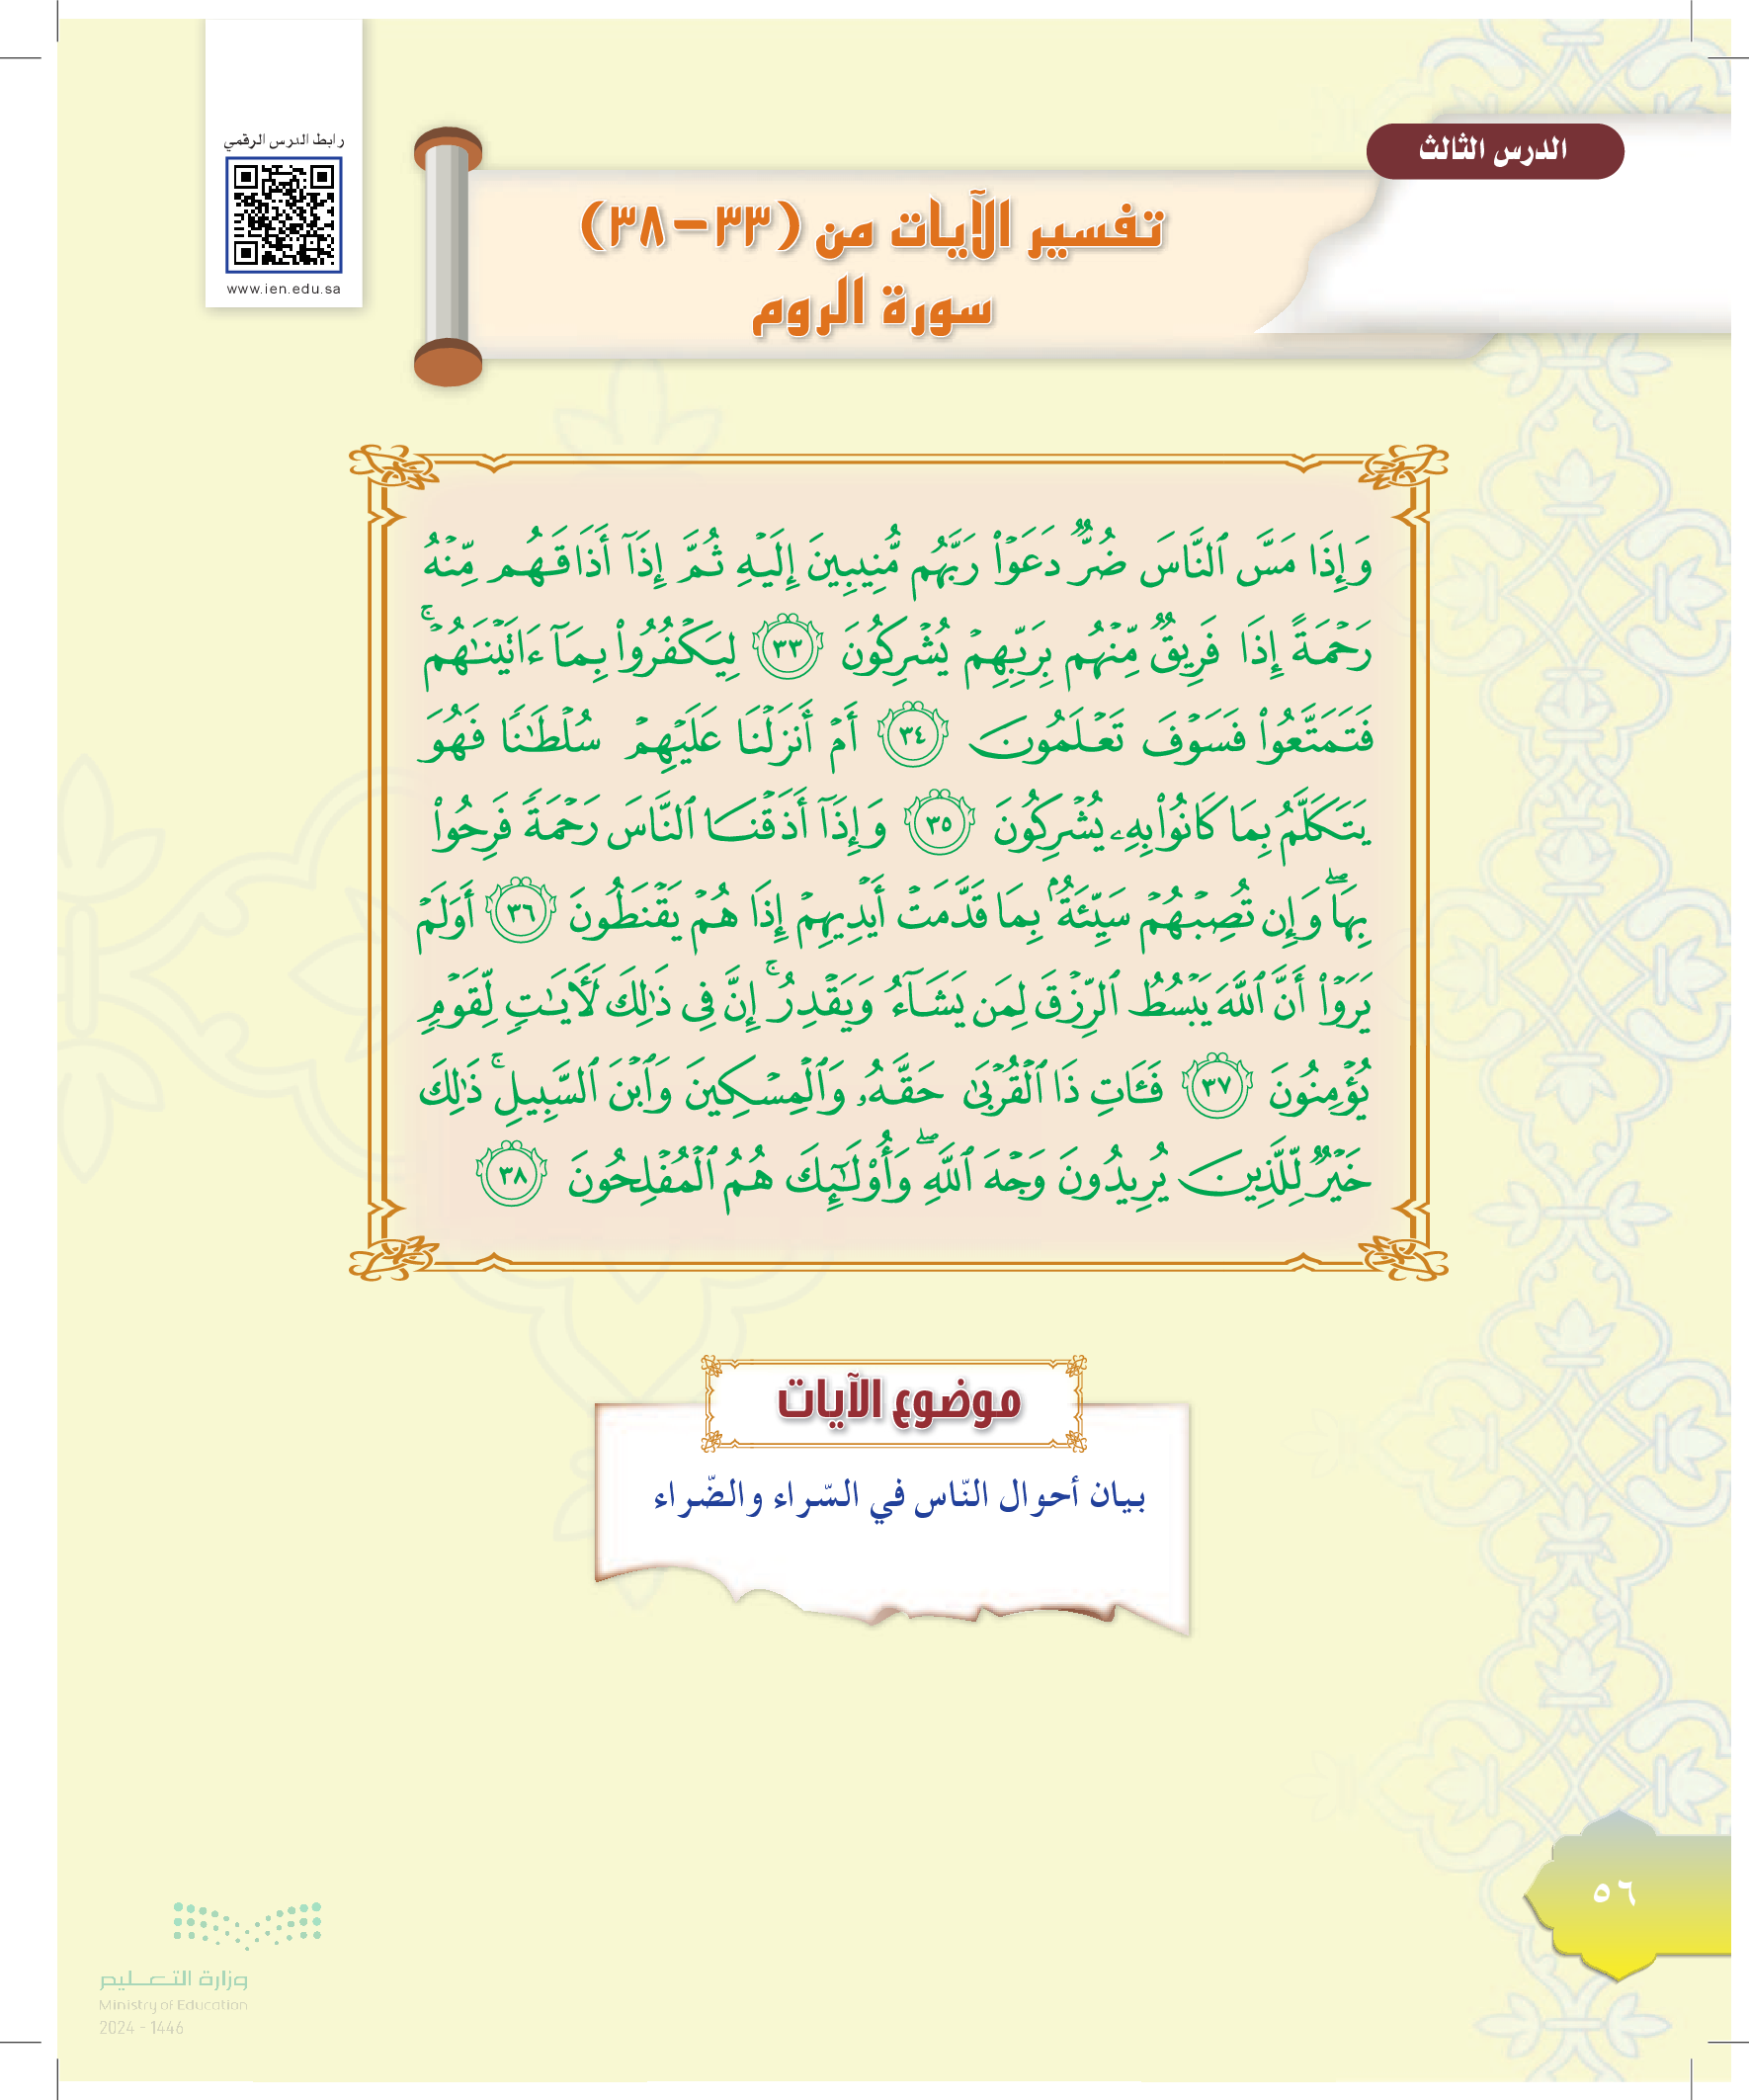 الدرس الثالث
رابط الدرس الرقمي
www.ien.edu.sa
تفسير الآيات من (٣٣-٣٨)
سورة الروم
وَإِذَا مَسَّ ٱلنَّاسَ ضُرٌّ دَعَوۡاْ رَبَّهُم مُّنِيبِينَ إِلَيۡهِ ثُمَّ إِذَآ أَذَاقَهُم مِّنۡهُ
رَحۡمَةً إِذَا فَرِيقٌ مِّنۡهُم بِرَبِّهِمۡ يُشۡرِكُونَ ٣٣ لِيَكۡفُرُواْ بِمَآ ءَاتَيۡنَٰهُمۡۚ
فَتَمَتَّعُواْ فَسَوۡفَ تَعۡلَمُونَ ٣٤ أَمۡ أَنزَلۡنَا عَلَيۡهِمۡ سُلۡطَٰنًا فَهُوَ
يَتَكَلَّمُ بِمَا كَانُواْ بِهِۦ يُشۡرِكُونَ ٣٥ وَإِذَآ أَذَقۡنَا ٱلنَّاسَ رَحۡمَةً فَرِحُواْ
بِهَاۖ وَإِن تُصِبۡهُمۡ سَيِّئَةُۢ بِمَا قَدَّمَتۡ أَيۡدِيهِمۡ إِذَا هُمۡ يَقۡنَطُونَ ٣٦ أَوَلَمۡ
يَرَوۡاْ أَنَّ ٱللَّهَ يَبۡسُطُ ٱلرِّزۡقَ لِمَن يَشَآءُ وَيَقۡدِرُۚ إِنَّ فِي ذَٰلِكَ لَأٓيَٰتٍ لِّقَوۡمٍ
يُؤۡمِنُونَ ٣٧ فَـَٔاتِ ذَا ٱلۡقُرۡبَىٰ حَقَّهُۥ وَٱلۡمِسۡكِينَ وَٱبۡنَ ٱلسَّبِيلِۚ ذَٰلِكَ
خَيۡرٌ لِّلَّذِينَ يُرِيدُونَ وَجۡهَ ٱللَّهِۖ وَأُوْلَٰٓئِكَ هُمُ ٱلۡمُفۡلِحُونَ ٣٨
موضوع الآيات
بيان أحوال النّاس في السّراء والضّراء
٥٦
وزارة التعليم
Ministry of Education
2024 - 1446